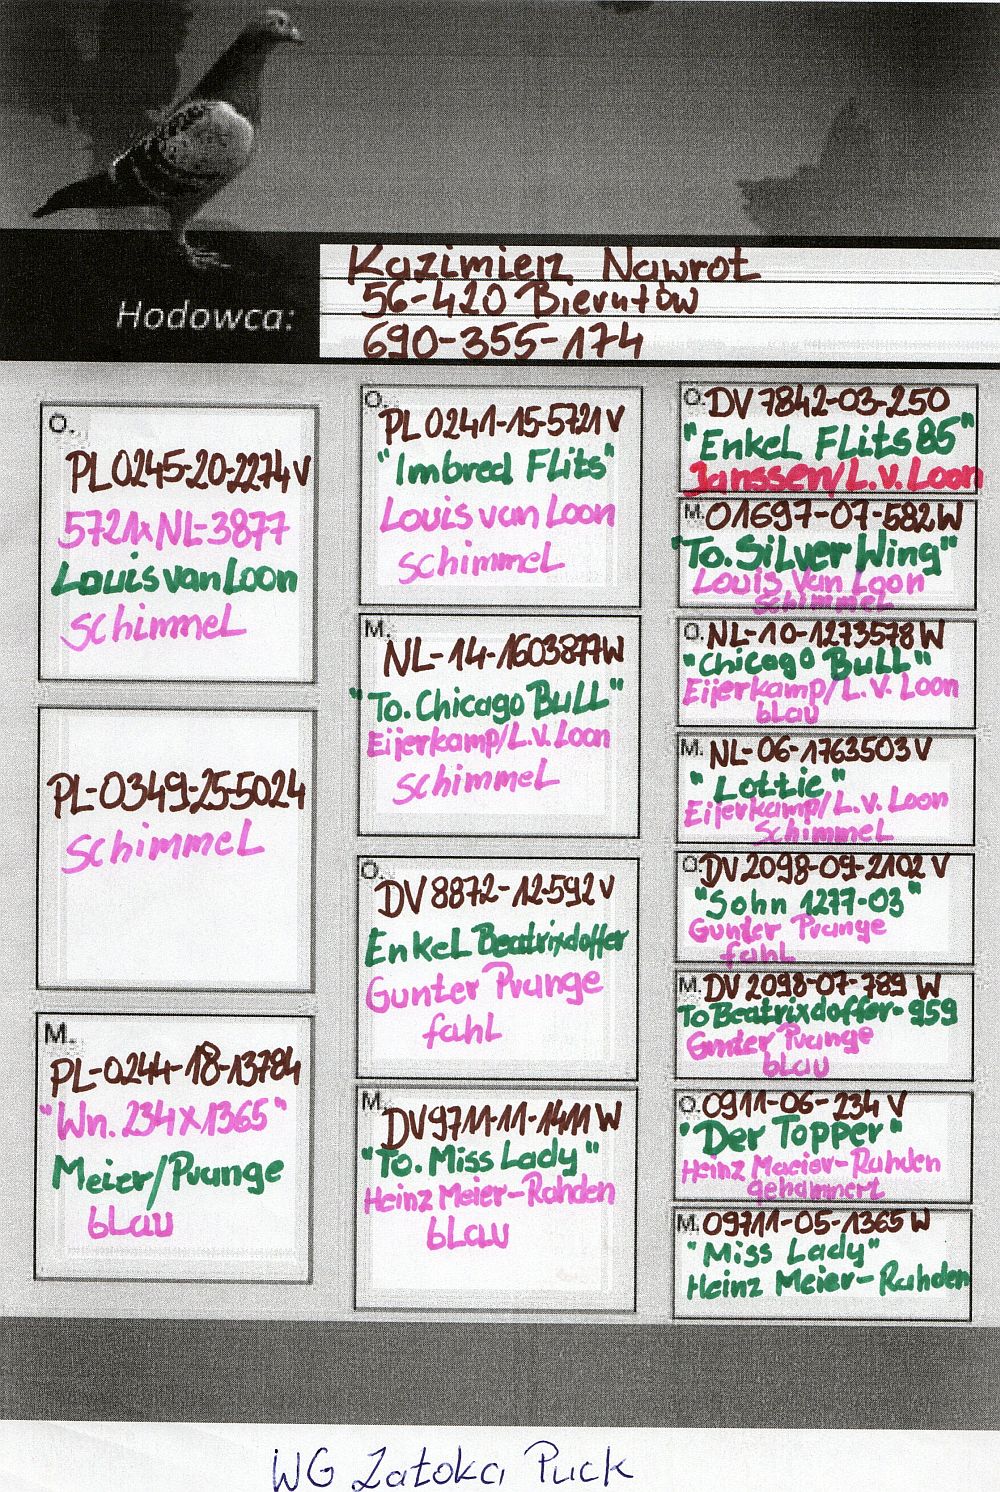 Kazimierz Nawrot
56-420 Bierutów
Hodowca:
690-355-174
O.
PL 0245-20-2274 V
5721x NL-3877
Louis van Loon
schimmel
PL-0349-25-5024
schimmel
M.
PL-0244-18-13784
"Wn. 234x1365"
Meier/Prange
blau
O.
PL 0241-15-5721 V
"Imbred Flits"
Louis van Loon
schimmel
M.
NL-14-1603877W
"To. Chicago Bull"
Eijerkamp/L.v. Loon
schimmel
O.
DV 8872-12-592 V
Enkel Beatrixdoffer
Gunter Prange
fahl
M.
DV 9711-11-1411 W
"To. Miss Lady"
Heinz Meier-Rahden
blau
O. DV 7842-03-250
"Enkel Flits 85"
Janssen/L.v. Loon
M. 01697-07-582W
"To. Silver Wing"
Louis Van Loon
schimmel
O. NL-10-1273578 W
"Chicago Bull"
Eijerkamp/L.v. Loon
blau
M. NL-06-1763503 V
"Lottie"
Eijerkamp/L.v. Loon
schimmel
O. DV 2098-09-2102 V
"Sohn 1277-03"
Gunter Prange
fahl
M. DV 2098-07-789 W
To Beatrixdoffer-959
Gunter Prange
blau
O. 0911-06-234 V
"Der Topper"
Heinz Maeier-Rahden
gehamnert
M. 09711-05-1365 W
"Miss Lady"
Heinz Meier-Rahden
WG Zatoka Puck